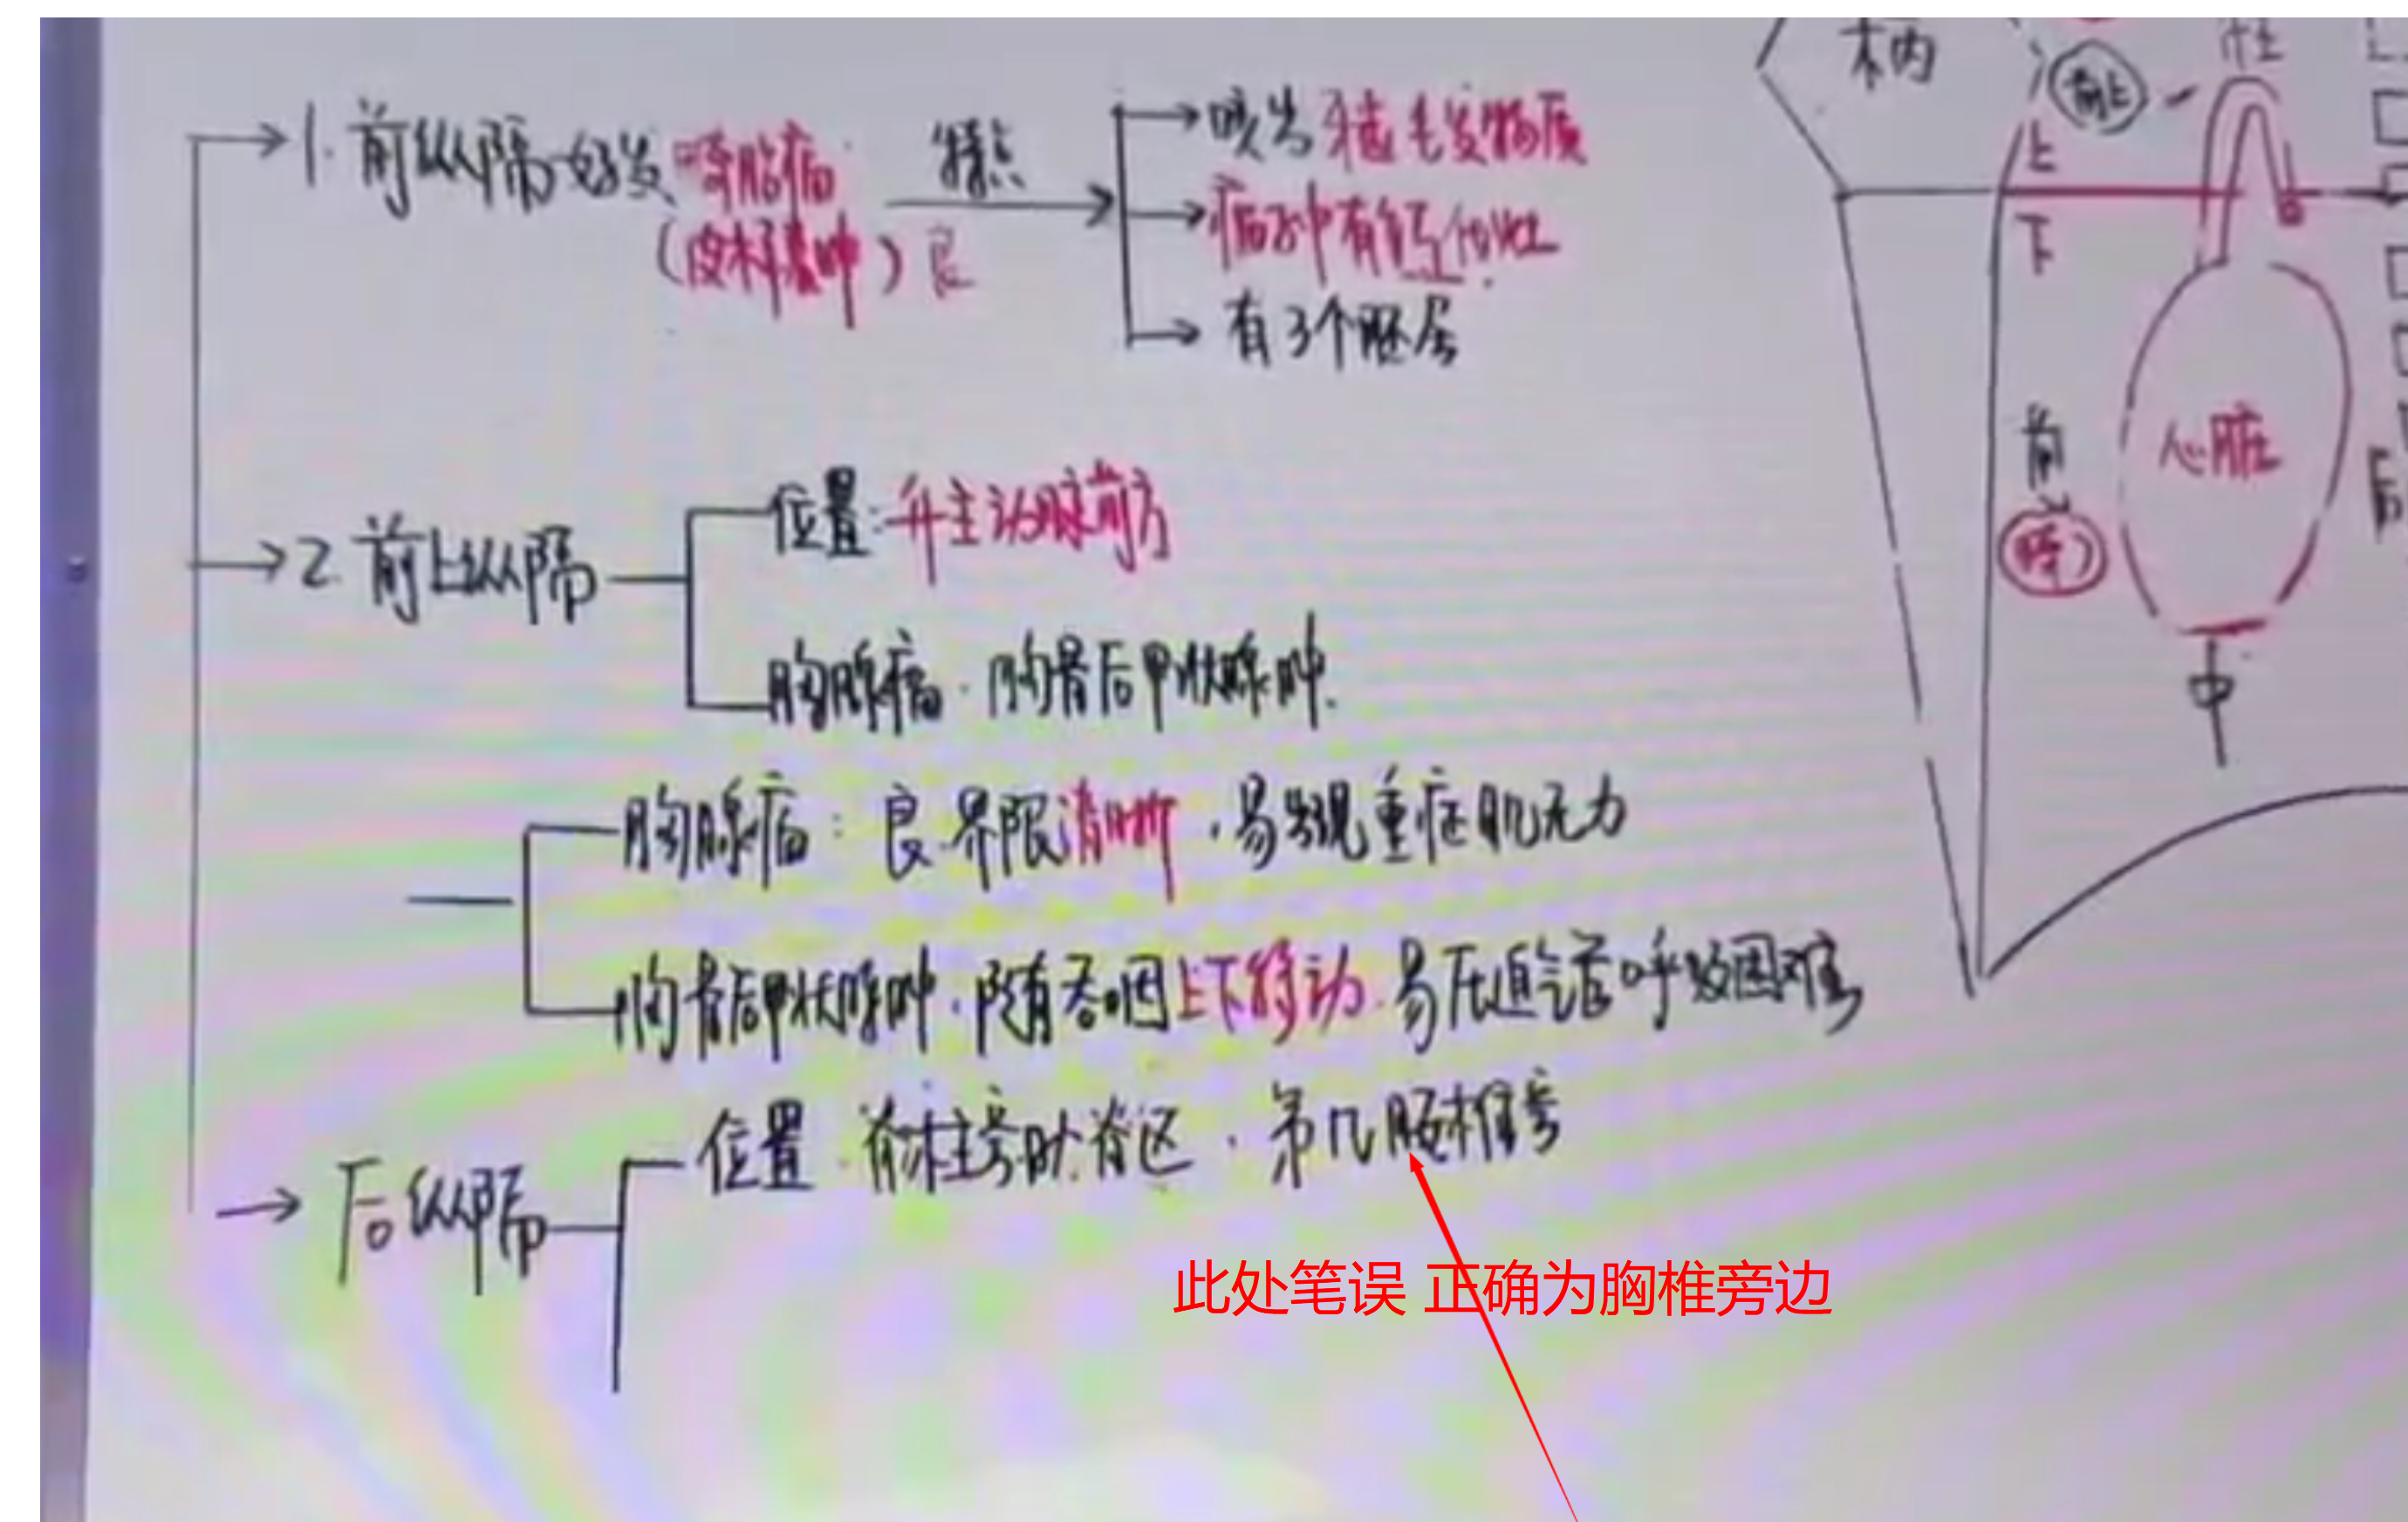 1. 前纵隔 好发 畸胎瘤
(皮样囊肿) 良
特点
咳出 牙齿毛发物质
瘤子中有钙化灶
有3个胚层
2. 前上纵隔
位置: 升主动脉前方
胸腺瘤. 胸骨后甲状腺肿.
胸腺瘤: 良. 界限清晰, 易出现重症肌无力
胸骨后甲状腺肿. 随着吞咽上下移动. 易压迫气管呼吸困难
后纵隔
位置. 脊柱旁肋脊区. 第几腰椎旁
此处笔误 正确为胸椎旁边
柄
前上
柱
上
下
前
畸
心脏
后
中